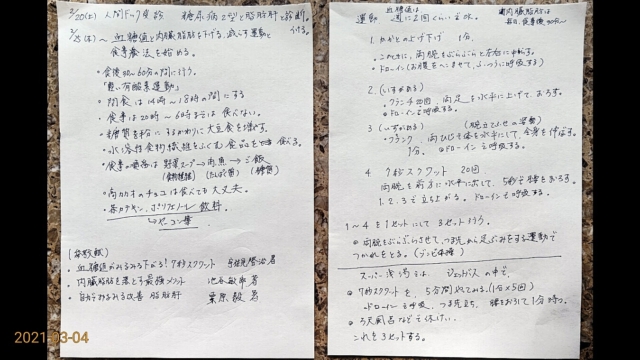 2/20(土) 人間ドック受診 糖尿病2型と脂肪肝と診断。
血糖値と内臓脂肪を下げる、減らす運動と
食事療法を始める。
・食後30〜60分の間に行う。
「軽い有酸素運動」
・間食は14時〜18時の間にする
・食事は20時〜6時までは食べない。
・糖質を半分にするかわりに大豆食を増やす。
・水溶性食物繊維をふくむ食品を 食べる。
・食事の順番は野菜スープ→肉魚→ご飯
(食物繊維) (たんぱく質) (糖質)
・高カカオのチョコは食べても大丈夫。
・茶カテキン、ポリフェノール飲料。
(参考文献)
・血糖値がみるみる下がる!7秒スクワット
・内臓脂肪を落とす最強メソッド 池谷敏郎 著
・自分でみるみる改善 脂肪肝 栗原毅 著
運動 血糖値は 週に2回くらいでOK。
内臓脂肪は
毎日、食事後30分〜
1. かかとの上げ下げ 1分。
・このときに、両腕をぶらぶらと左右に
・ドローイン(お腹をへこませて、ふつうに呼吸する)
2. (いすがある)
・クランチ20回 両足を水平に上げて、おろす。
ドローインで呼吸する。
3 (いすがある) (腕立てふせの姿勢)
・プランク 両ひじを水平にして、全身を伸ばす。
1分。 ドローインで呼吸する。
4 7秒スクワット 20回
両腕を前に水平に出して、5秒で腰をおろす。
1.2.3で立ち上がる。ドローインで呼吸する。
1〜4を1セットにして 3セット行う。
両腕をぶらぶらさせて、つま先から足ぶみをする運動で
つかれをとる。(ゾンビ体操)
スーパー銭湯では、ジェットバスの中で、
7秒スクワットを、5分間やってみる。(1分×5回)
ドローインで呼吸、つま先立ち、腰をおろして1分待つ。
これを3セットする。
2021-03-04